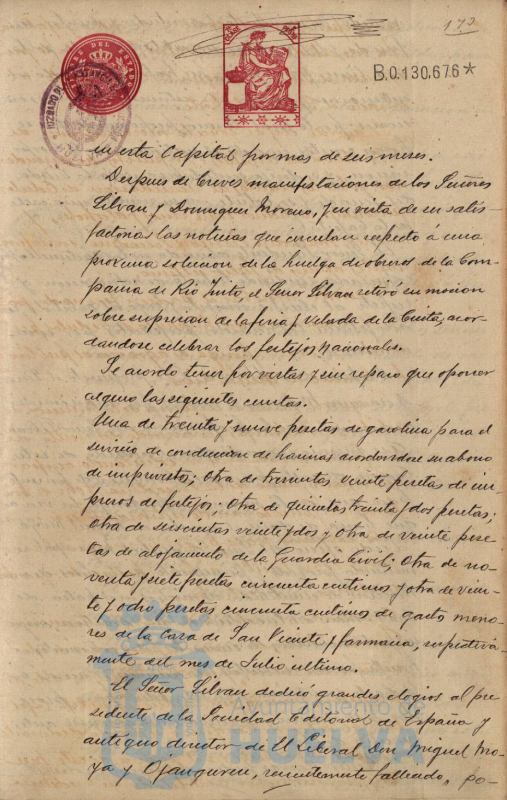 173
B.0.130.676*
en esta Capital por mas de seis meses.
Despues de breves manifestaciones de los Señores
Silvan y Dominguez Moreno, y en vista de ser satis-
factorias las noticias que circulan respecto á una
proxima solucion de la huelga de obreros de la Com-
pañia de Rio Tinto, el Señor Silvan retiró su mocion
sobre supresion de la feria y Velada de la Cinta, acor-
dandose celebrar los festejos nacionales.
Se acordo tener por vistas y sin reparo que oponer
alguno las siguientes cuentas.
Una de treinta y nueve pesetas de gasolina para el
servicio de conduccion de harinas acordandose su abono
de imprevistos; otra de trescientas veinte pesetas de im-
presos de festejos; otra de quinientas treinta y dos pesetas;
otra de seiscientas veinte y dos y otra de veinte pese-
tas de alojamiento de la Guardia Civil; otra de no-
venta y siete pesetas cincuenta centimos y otra de vein-
te y ocho pesetas cincuenta centimos de gastos meno-
res de la Casa de San Vicente y farmacia, respectiva-
mente del mes de Julio ultimo.
El Señor Silvan dedicó grandes elogios al pre-
sidente de la Sociedad Editorial de España y
antiguo director de El Liberal Don Miguel Mo-
ya y Ojanguren, recientemente fallecido, po-
Ayuntamiento de
HUELVA